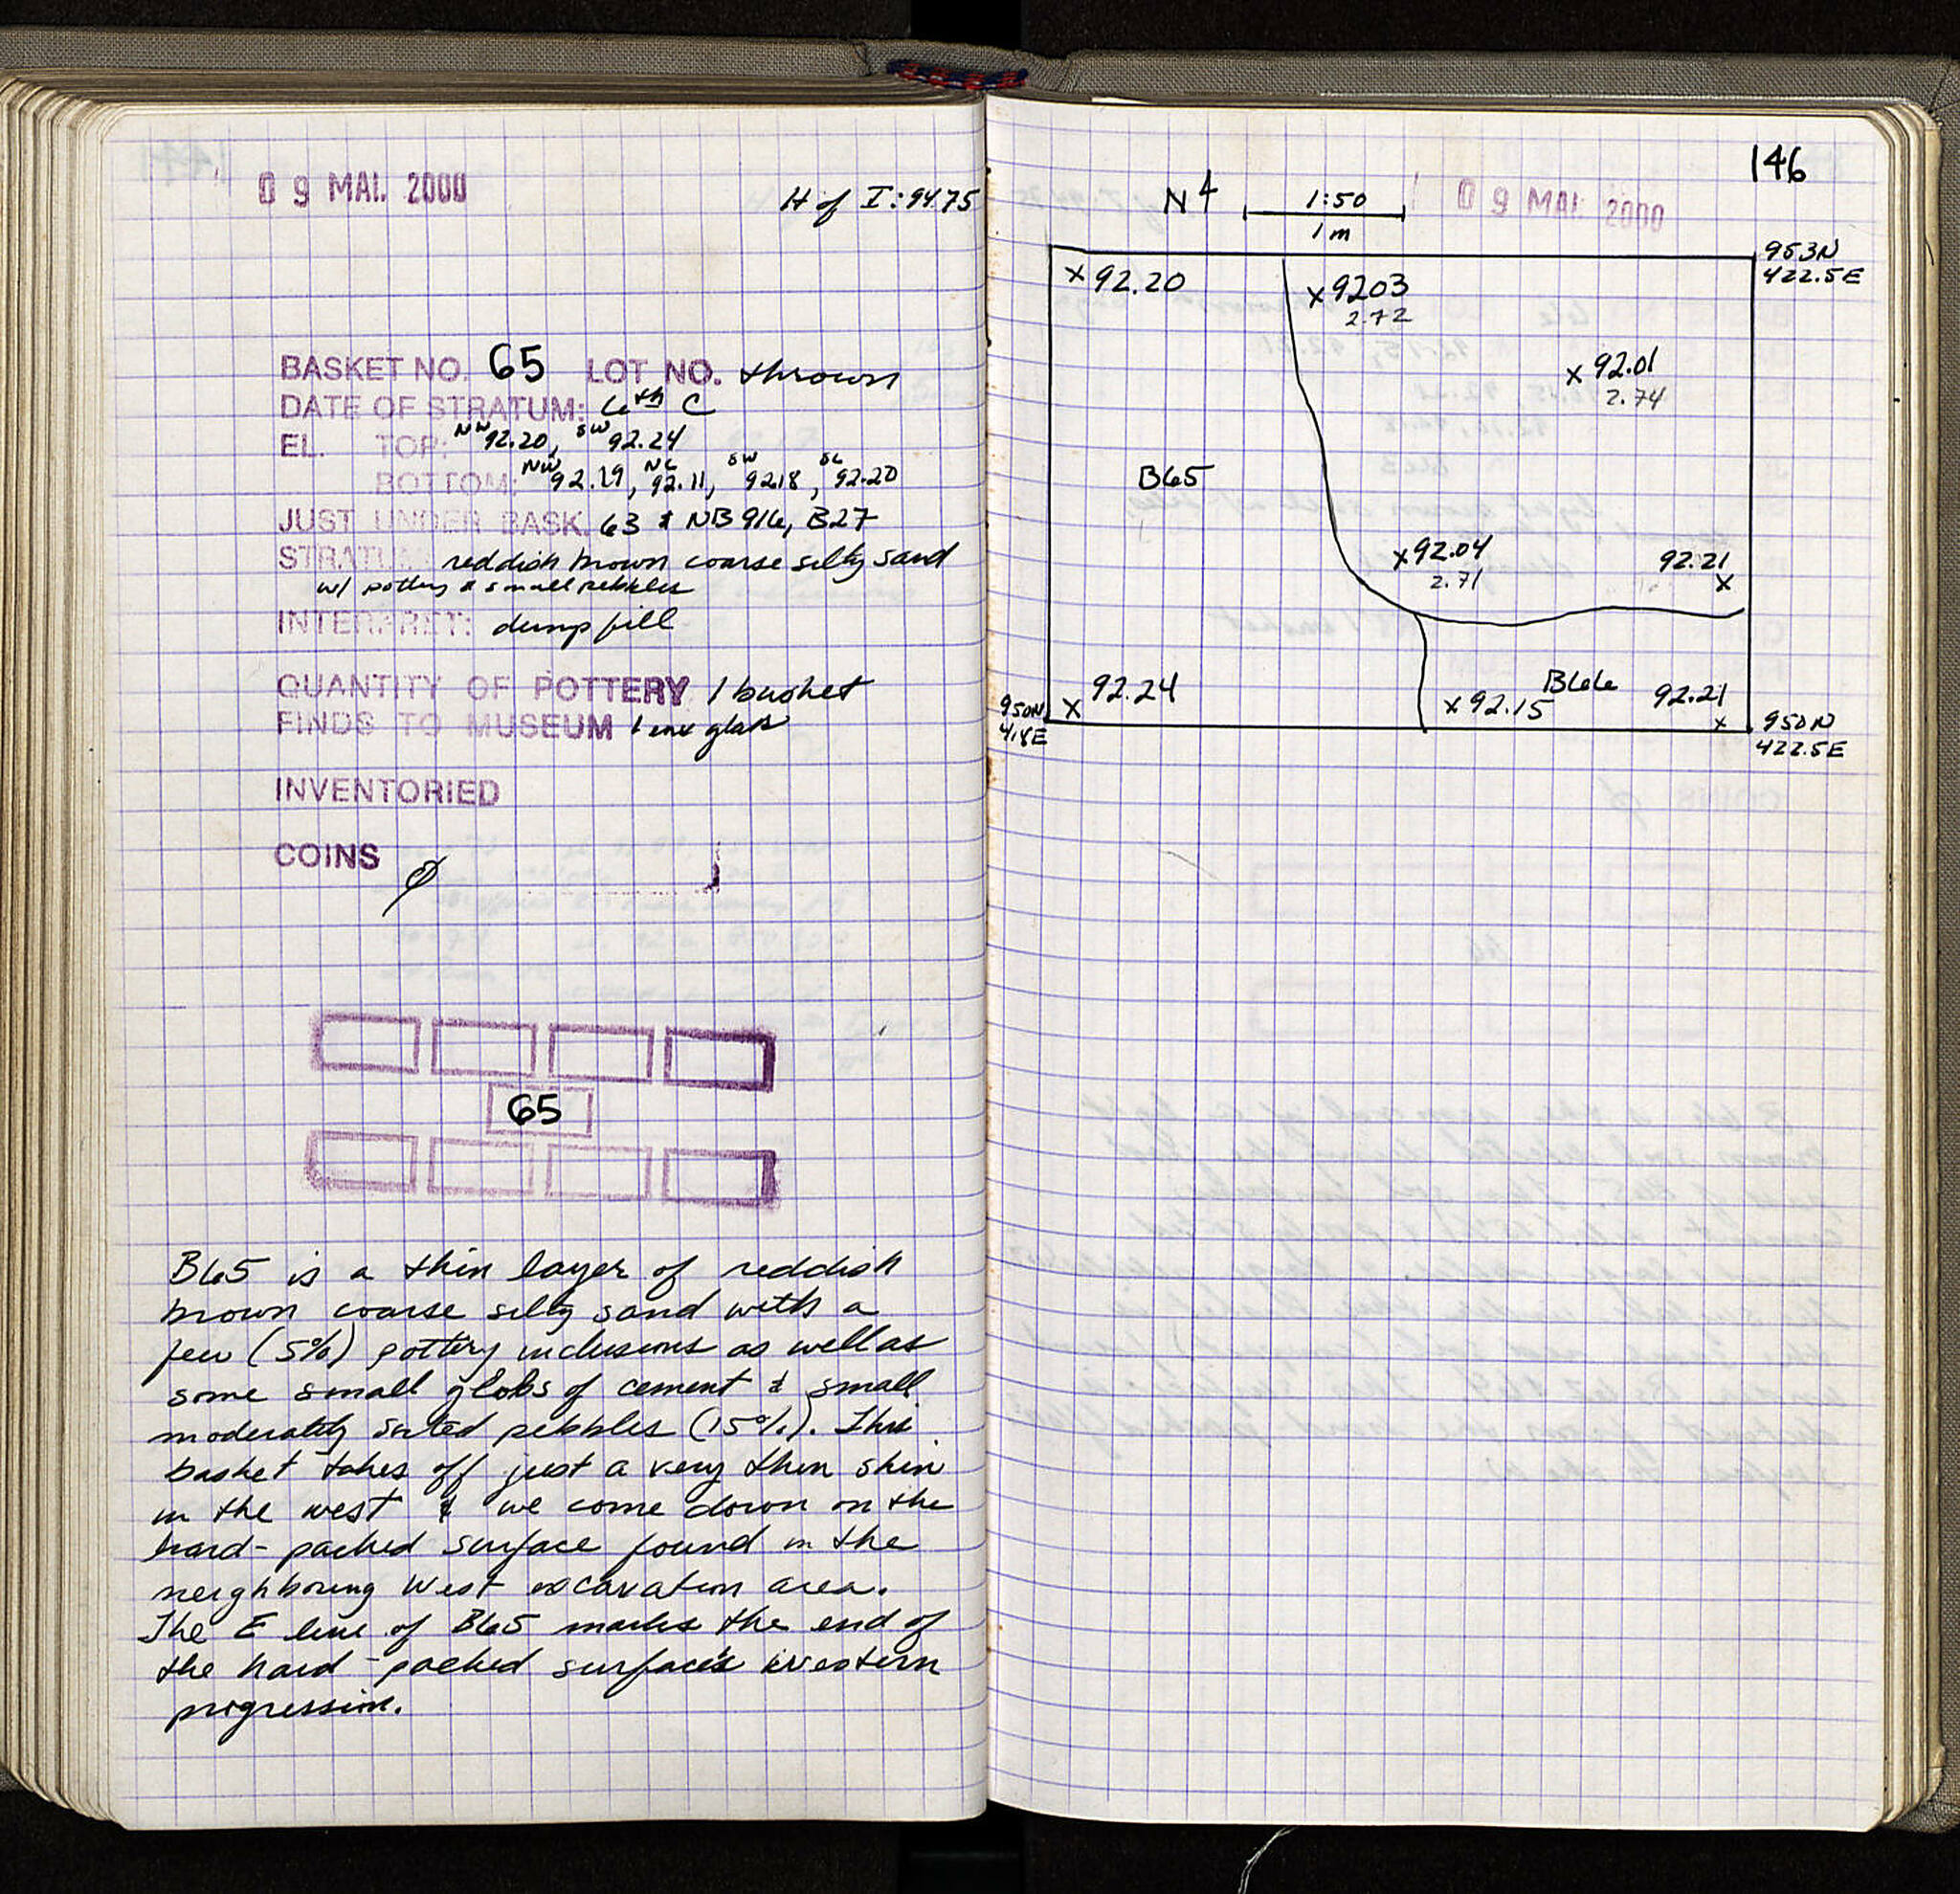 09 MAI. 2000
H of I: 94.75
BASKET NO. 65 LOT NO. thrown
DATE OF STRATUM: 6th C
EL. TOP: NW 92.20, SW 92.24
BOTTOM: NW 92.19, NE 92.11, SW 92.18, SE 92.20
JUST UNDER BASK. 63 & NB 916, B27
STRATUM: reddish brown coarse silty sand
w/ pottery & small pebbles
INTERPRET: dump fill
QUANTITY OF POTTERY 1 basket
FINDS TO MUSEUM 1 env glass
INVENTORIED
COINS ∅
65
B65 is a thin layer of reddish
brown coarse silty sand with a
few (5%) pottery inclusions as well as
some small globs of cement & small
moderately sorted pebbles (15%). This
basket takes off just a very thin skin
in the west & we come down on the
hard-packed surface found in the
neighboring West excavation area.
The E line of B65 marks the end of
the hard-packed surface's western
progression.
146
N
1:50
1 m
09 MAI. 2000
953N
422.5E
x 92.20
x 9203
2.72
x 92.01
2.74
B65
x 92.04
2.71
92.21
x
92.24
x
B66
x 92.15
92.21
x
950N
418E
950N
422.5E